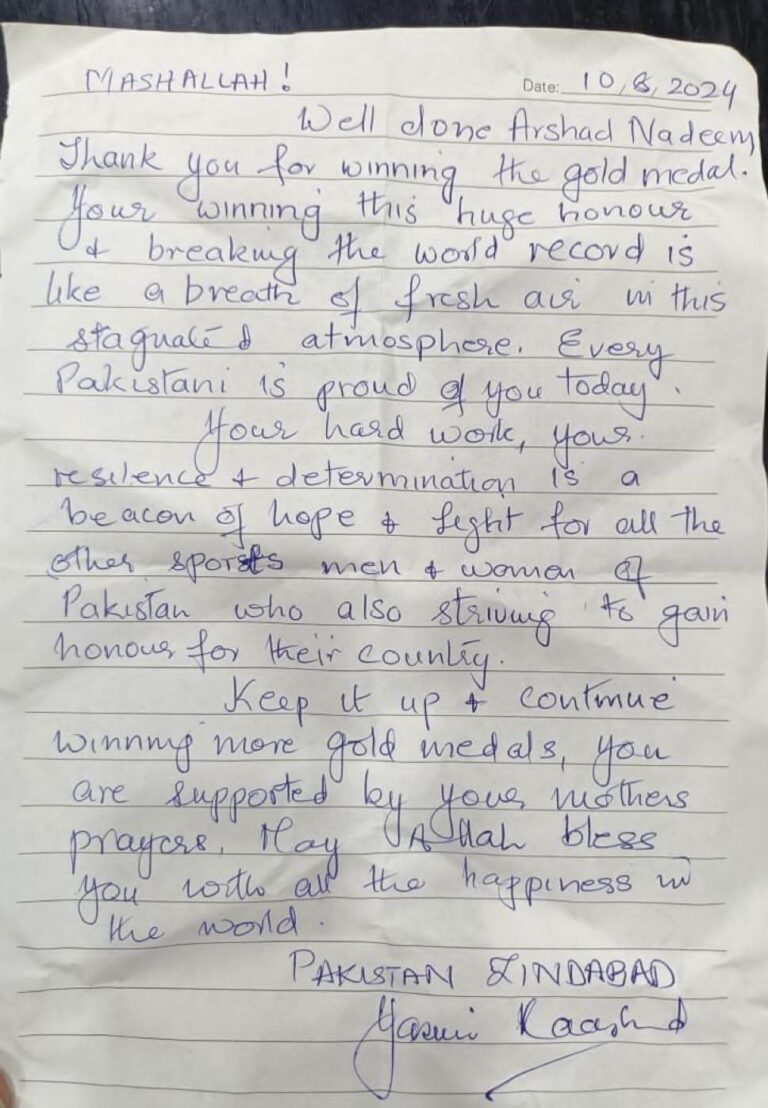 MASHALLAH!
Date: 10,8,2024
Well done Arshad Nadeem,
Thank you for winning the gold medal.
Your winning this huge honour
& breaking the world record is
like a breath of fresh air in this
stagnated atmosphere. Every
Pakistani is proud of you today.
Your hard work, your
resilence & determination is a
beacon of hope & light for all the
other sports men & women of
Pakistan who also striving to gain
honour for their country.
Keep it up & continue
winning more gold medals, you
are supported by your mothers
prayers. May Allah bless
you with all the happiness in
the world.
PAKISTAN ZINDABAD
Yasmin Raashid